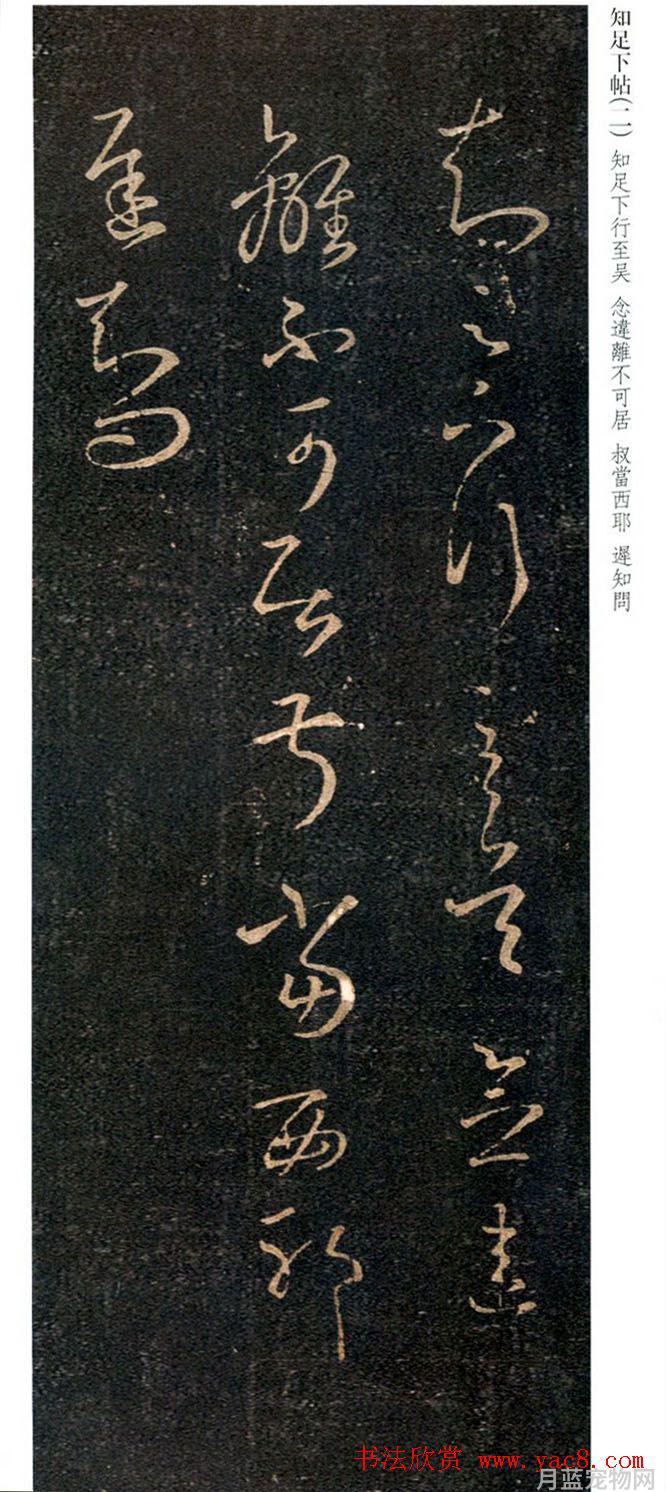 知足下帖(二) 知足下行至吴 念違離不可居 叔當西耶 遲知問
知足下行至吴念違
離不可居叔當西耶
遲知問
书法欣赏 www.yac8.com
月蓝宠物网